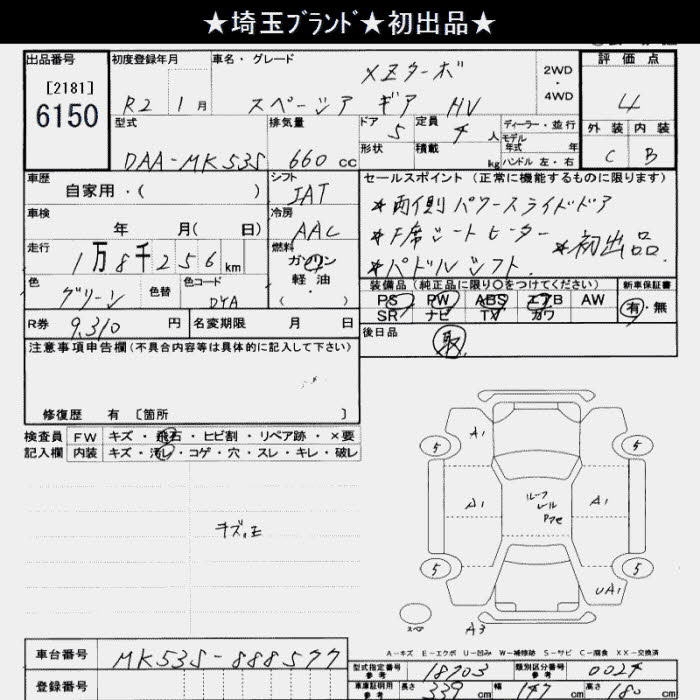 ★埼玉ﾌﾞﾗﾝﾄﾞ★初出品★
出品番号 初度登録年月 車名・グレード 評価点
[2181]
6150
R2 1月 スペーシア ギア HV
XZターボ
2WD
・
4WD
4
外装 内装
C B
型式 排気量 ドア 定員 ディーラー・並行
DAA-MK53S 660cc 5 4人
モデル年式 年
形状 積載 kg ハンドル 左・右
車歴 シフト セールスポイント (正常に機能するものに限ります)
自家用・( ) IAT
*両側パワースライドドア
車検 冷房
年 月( 日) AAC
*F席シートヒーター *初出品
走行 燃料
1万8千256km ガソリン
軽油
・
( )
*パドルシフト.
色 色替 色コード
グリーン
装備品 (純正品に限り○をつけてください) 新車保証書
PS PW ABS エアB AW 有・無
SR ナビ TV カワ
R券 9,310円 名変期限 月 日
後日品 取
注意事項申告欄(不具合内容等は具体的に記入して下さい)
修復歴 有 〔箇所 〕
検査員 FW キズ・飛石・ヒビ割・リペア跡・×要
記入欄 内装 キズ・汚レ・コゲ・穴・スレ・キレ・破レ
A1
5 5
A1 ルーフレール A1
5 5
UA1
スペア A3
A-キズ E-エクボ U-凹み W-補修跡 S-サビ C-腐食 XX-交換済
車台番号 MK53S-888577
登録番号
型式指定番号 参考 18703 類別区分番号 参考 0024
車庫証明用 参考 長さ 339cm 幅 147cm 高さ 180cm